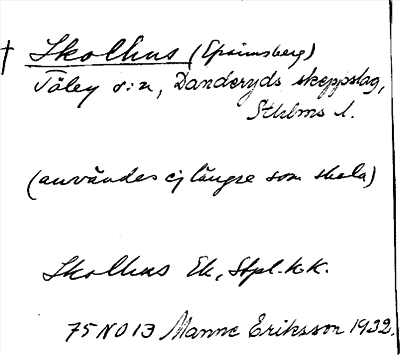 † Skolhus (Epsimsberg)
Täby s:n, Danderyds skeppslag,
Sthlms l.
(användes ej längre som skola)
Skolhus Ek, Stpl.k.k.
75 NO 13 Manne Eriksson 1932.